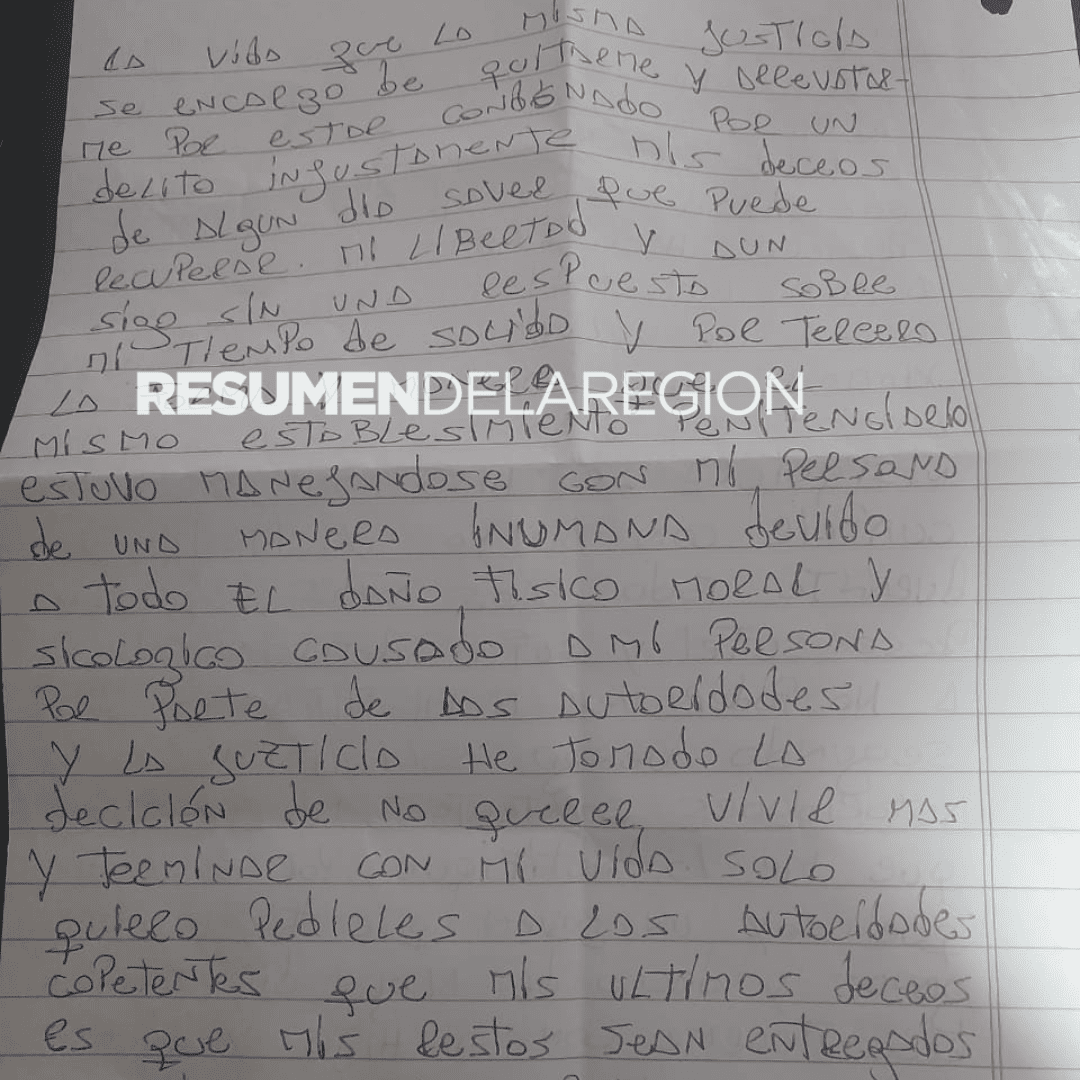 LA VIDA que LA MISMA JUSTICIA
SE ENCARGO DE QUITARME Y ARREVATAR-
ME POR ESTAR CONDENADO POR UN
DELITO INJUSTAMENTE MIS DECEOS
DE ALGUN DIA SAVER QUE PUEDE
RECUPERAR. MI LIBERTAD Y AUN
SIGO SIN UNA RESPUESTA SOBRE
MI TIEMPO DE SALIDA Y POR TERCERO
LA QUE EL
RESUMENDELAREGION
MISMO ESTABLESIMIENTO PENITENCIARIO
ESTUVO MANEJANDOSE CON MI PERSANA
DE UNA MANERA INUMANA DEVIDO
A TODO EL DAÑO, FISICO MORAL Y
SICOLOGICO CAUSADO A MI PERSONA
POR PARTE DE LAS AUTORIDADES
Y LA JUZTICIA HE TOMADO LA
DECICIÓN DE NO QUERER VIVIR MAS
Y TERMINAR CON MI VIDA SOLO
QUIERO PEDIRLES A LAS AUTORIDADES
COPETENTES QUE MIS ULTIMOS DECEOS
ES QUE MIS RESTOS SEAN ENTREGADOS